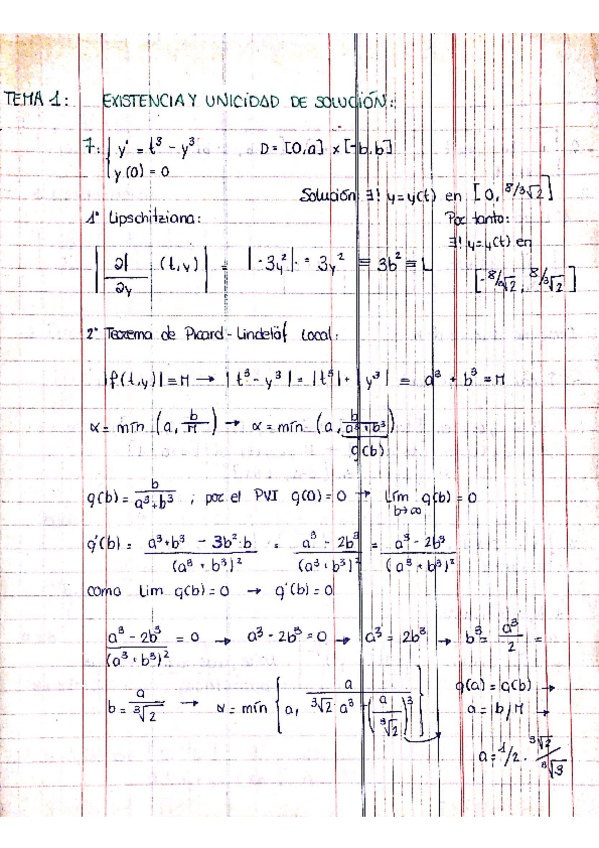 TEMA 1: EXISTENCIA Y UNICIDAD DE SOLUCIÓN:
7: { y' = t³ - y³ D = [0,a] x [-b,b]
y(0) = 0
Solución ∃! y=y(t) en [0, ⁸/³√2]
1º Lipschitziana: Por tanto:
∃! y=y(t) en
|∂f/∂y (t,y)| = |-3y²| = 3y² ≡ 3b² ≡ L
[-⁸/³√2, ⁸/³√2]
2º Teorema de Picard-Lindelöf Local:
|f(t,y)| ≡ M → |t³ - y³| = |t³| + |y³| = a³ + b³ = M
α = mín (a, b/M) → α = mín (a, b/(a³+b³))
g(b)
g(b) = b/(a³+b³) ; por el PVI g(0) = 0 → lím g(b) = 0
b→∞
g'(b) = (a³+b³ - 3b²·b)/(a³+b³)² = (a³ - 2b³)/(a³+b³)² = (a³ - 2b³)/(a³+b³)²
como lím g(b) = 0 → g'(b) = 0
(a³ - 2b³)/(a³+b³)² = 0 → a³ - 2b³ = 0 → a³ = 2b³ → b³ = a³/2 =
b = a/³√2 → α = mín {a, a/(³√2·a³+(a/³√2)³)}
g(a) = g(b) →
a = b/M →